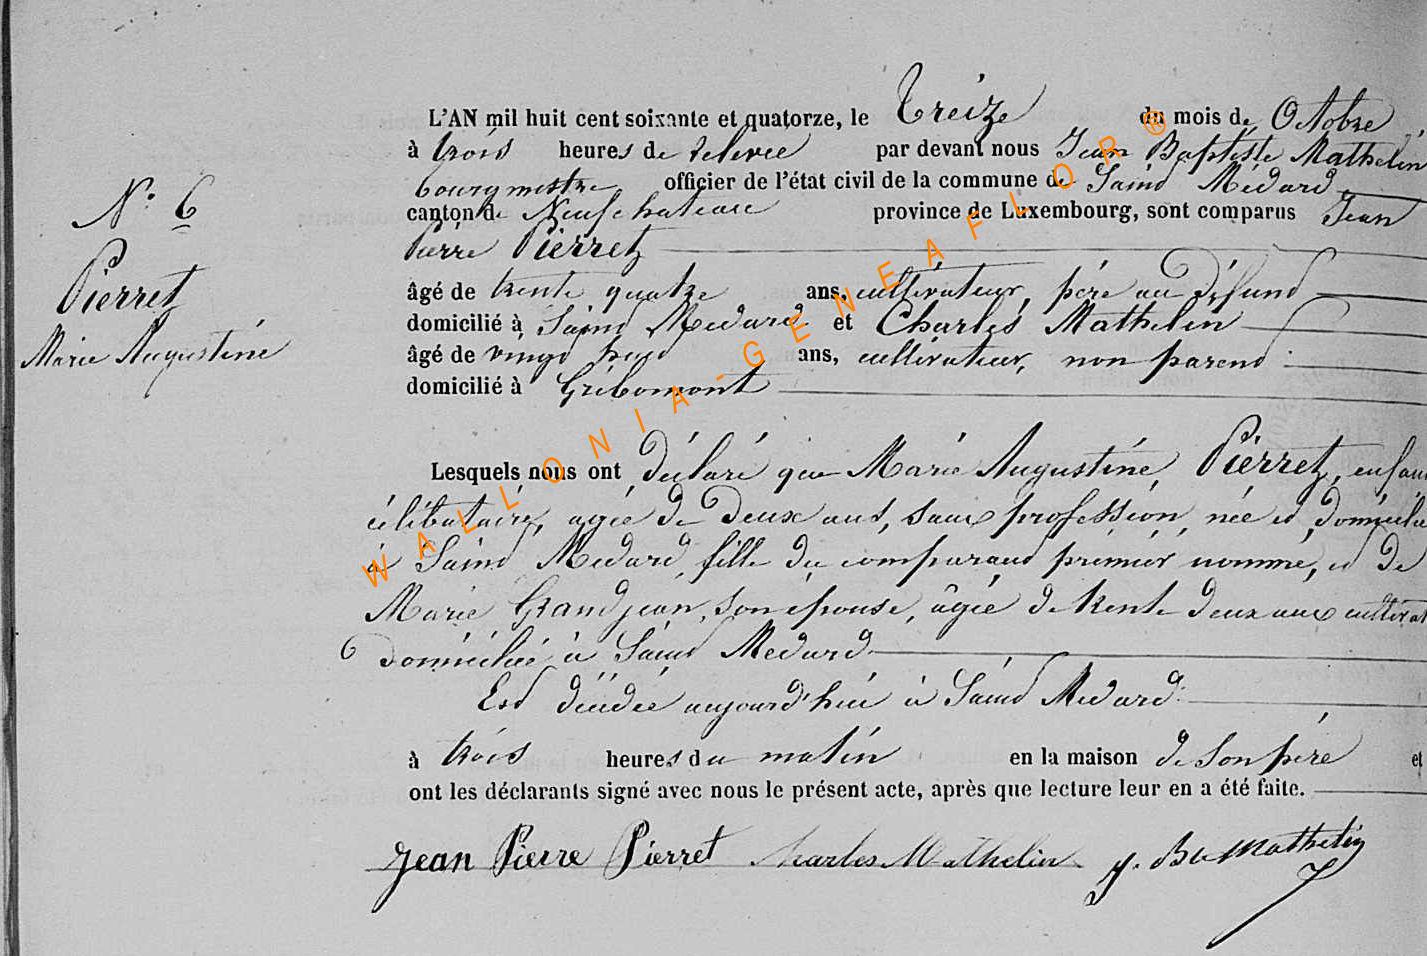 L'AN mil huit cent soixante et quatorze, le Treize du mois de Octobre
à trois heures de relevée par devant nous Jean Baptiste Mathelin
bourgmestre officier de l'état civil de la commune de Saint Médard
canton de Neufchateau province de Luxembourg, sont comparus Jean
Pierre Pierret
âgé de trente quatre ans, cultivateur, père au défunt
domicilié à Saint Médard et Charles Mathelin
âgé de vingt huit ans, cultivateur, non parent
domicilié à Gribomont
N° 6
Pierret
Marie Augustine
Lesquels nous ont déclaré que Marie Augustine Pierret, enfant
célibataire, agée de deux ans, sans profession, née et domiciliée
à Saint Médard, fille du comparant premier nommé, et de
Marie Grandjean, son épouse, âgée de trente deux ans cultivat
domiciliée à Saint Médard
Est décédée aujourd'hui à Saint Médard
à trois heures du matin en la maison de son père et
ont les déclarants signé avec nous le présent acte, après que lecture leur en a été faite.
Jean Pierre Pierret Charles Mathelin J. Bte Mathelin
WALLONIA-GENEAFLOR®